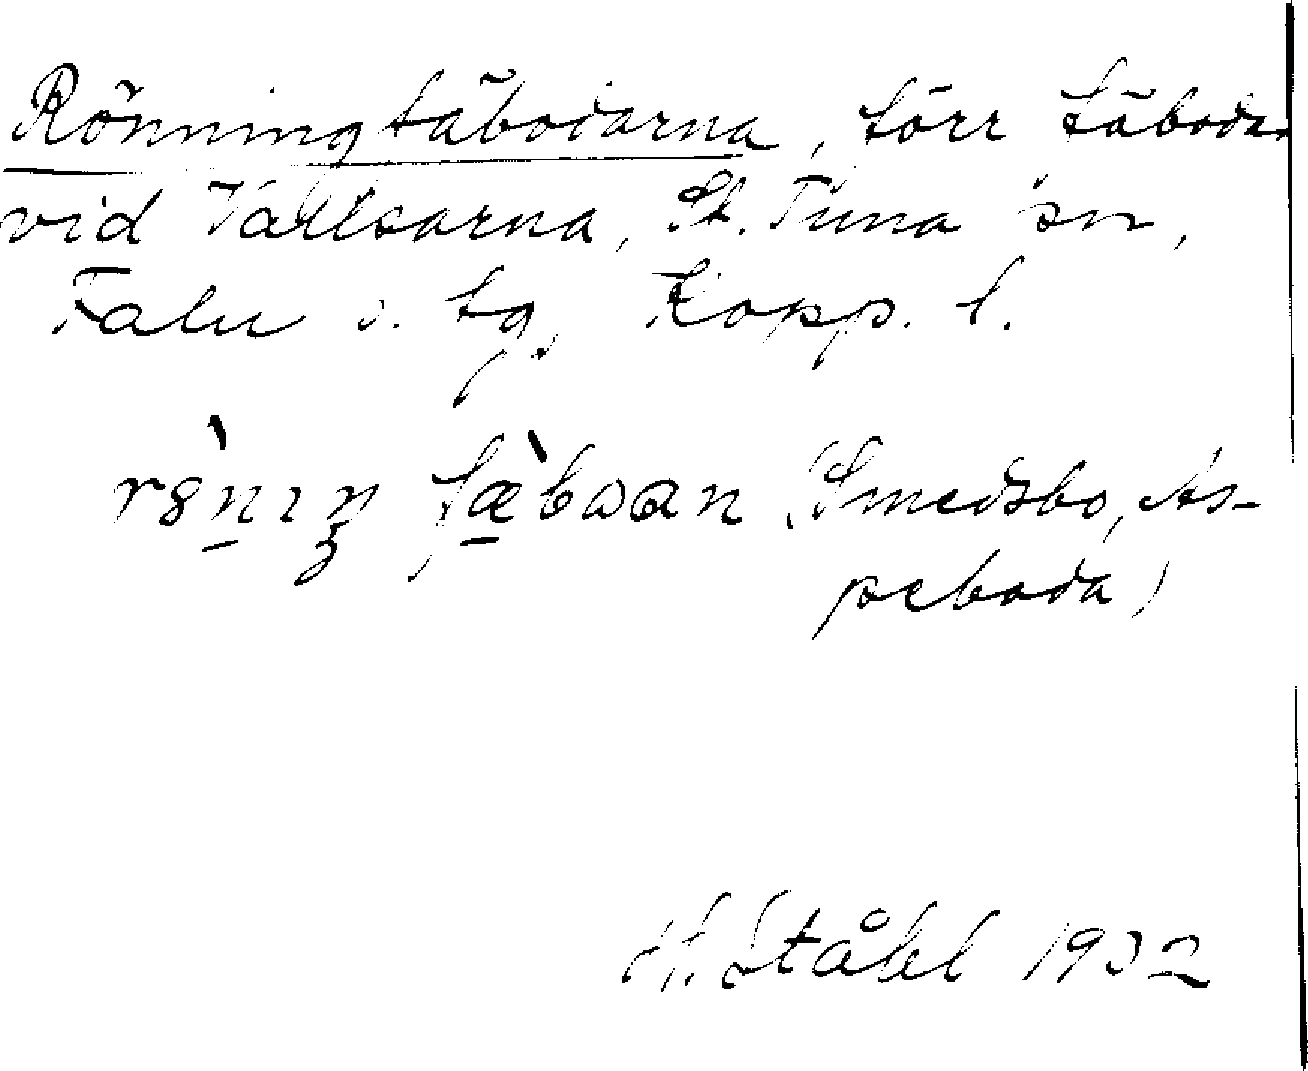 Rönningfäbodarna, förr fäbodar
vid Vallsarna, St. Tuna sn,
Falu s. tg, Kopp. l.
(Smedsbo, As-
peboda)
H. Ståhl 1932